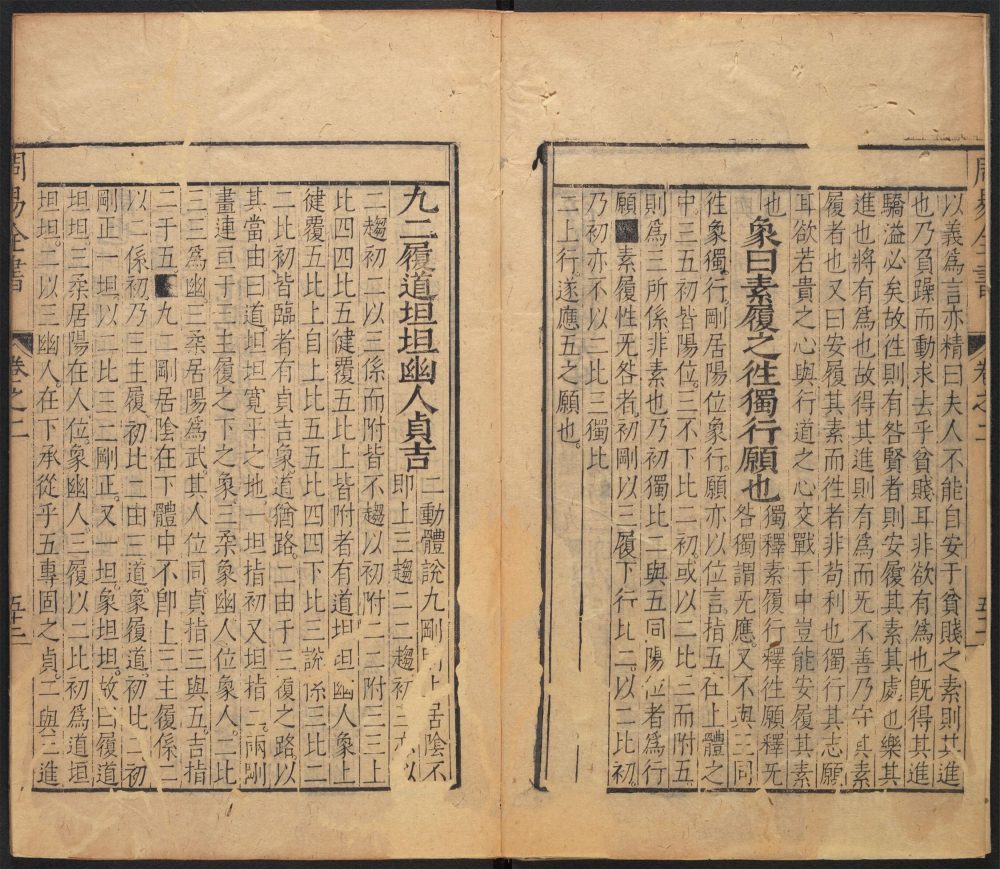 以義爲言亦精曰夫人不能自安于貧賤之素則其進
也乃貟躁而動求去乎貧賤耳非欲有爲也旣得其進
驕溢必矣故徃則有咎賢者則安履其素其處也樂其
進也將有爲也故得其進則有爲而旡不善乃守其素
履者也又曰安履其素而徃者非苟利也獨行其志願
耳欲若貴之心與行道之心交戰于中豈能安履其素
也
象曰素履之徃獨行願也
獨釋素履行釋徃願釋旡
咎獨謂旡應又不與三同
徃象獨行剛居陽位象行。願亦以位言。指五在上體之
中。三五初皆陽位。三不下比二初。或以二比三而附五
則爲三所係非素也乃初獨比二與五同陽位者爲行
願 素履性旡咎者。初剛以三履下行比二。以二比初。
乃初亦不以二比三獨比
二上行。遂應五之願也。
周易全書
卷之二
五十二
九二履道坦坦幽人貞吉
二動體說九剛 居陰不
卽上三趨二二趨初 以
二趨初二以三係而附皆不趨以初附二二附三三上
比四四比五健覆五比上皆附者有道坦坦幽人象上
健覆五比上自上比五五比四四下比三說係三比二
二比初皆臨者有貞吉象道猶路。二由于三復之路以
其當由曰道。坦坦寬平之地一坦指初又坦指二。兩剛
畫連亘于三主履之下之象三柔象幽人位象人。二比
三三爲幽。三柔居陽爲武其人位同。貞指三與五。吉指
二于五。 九二剛居陰在下體中不卽上三主履係二
以二係初。乃三主履。初比二由三道。象履道。初比二初
剛正一坦。以二比三二剛正。又一坦。象坦坦。故曰履道
坦坦。三柔居陽在人位。象幽人三履以二比初爲道坦
坦坦。二以三幽人。在下承從乎五專固之貞。二與三進
周易全書
卷之二
五十三